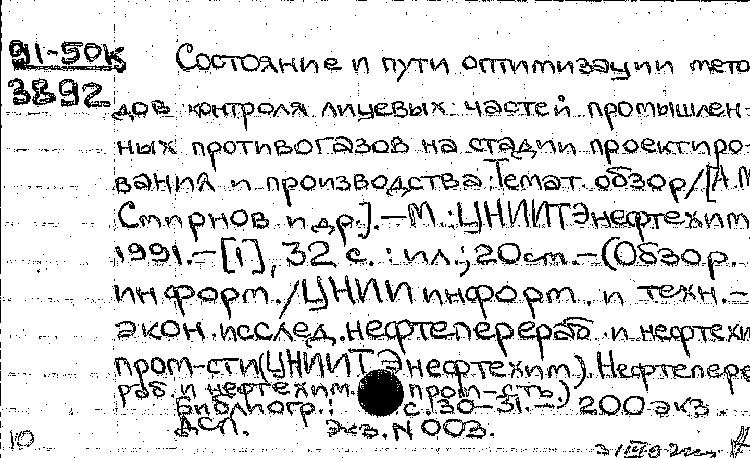 91-50К
3892
Состояние и пути оптимизации мето
дов контроля лицевых частей промышлен-
ных противогазов на стадии проектиро-
вания и производства: Темат. обзор/[А.М.
Смирнов и др.].-М.:ЦНИИТЭнефтехим
1991.-[1], 32 с.: ил.; 20см.-(Обзор.
информ./ЦНИИ информ. и техн.-
экон. исслед. нефтеперераб. и нефтехи
пром-сти(ЦНИИТЭнефтехим). Нефтепере
раб. и нефтехим. пром-сть.)
Библиогр.: с. 30-31.-. 200 экз.
ДСП. Экз. N 003.
10